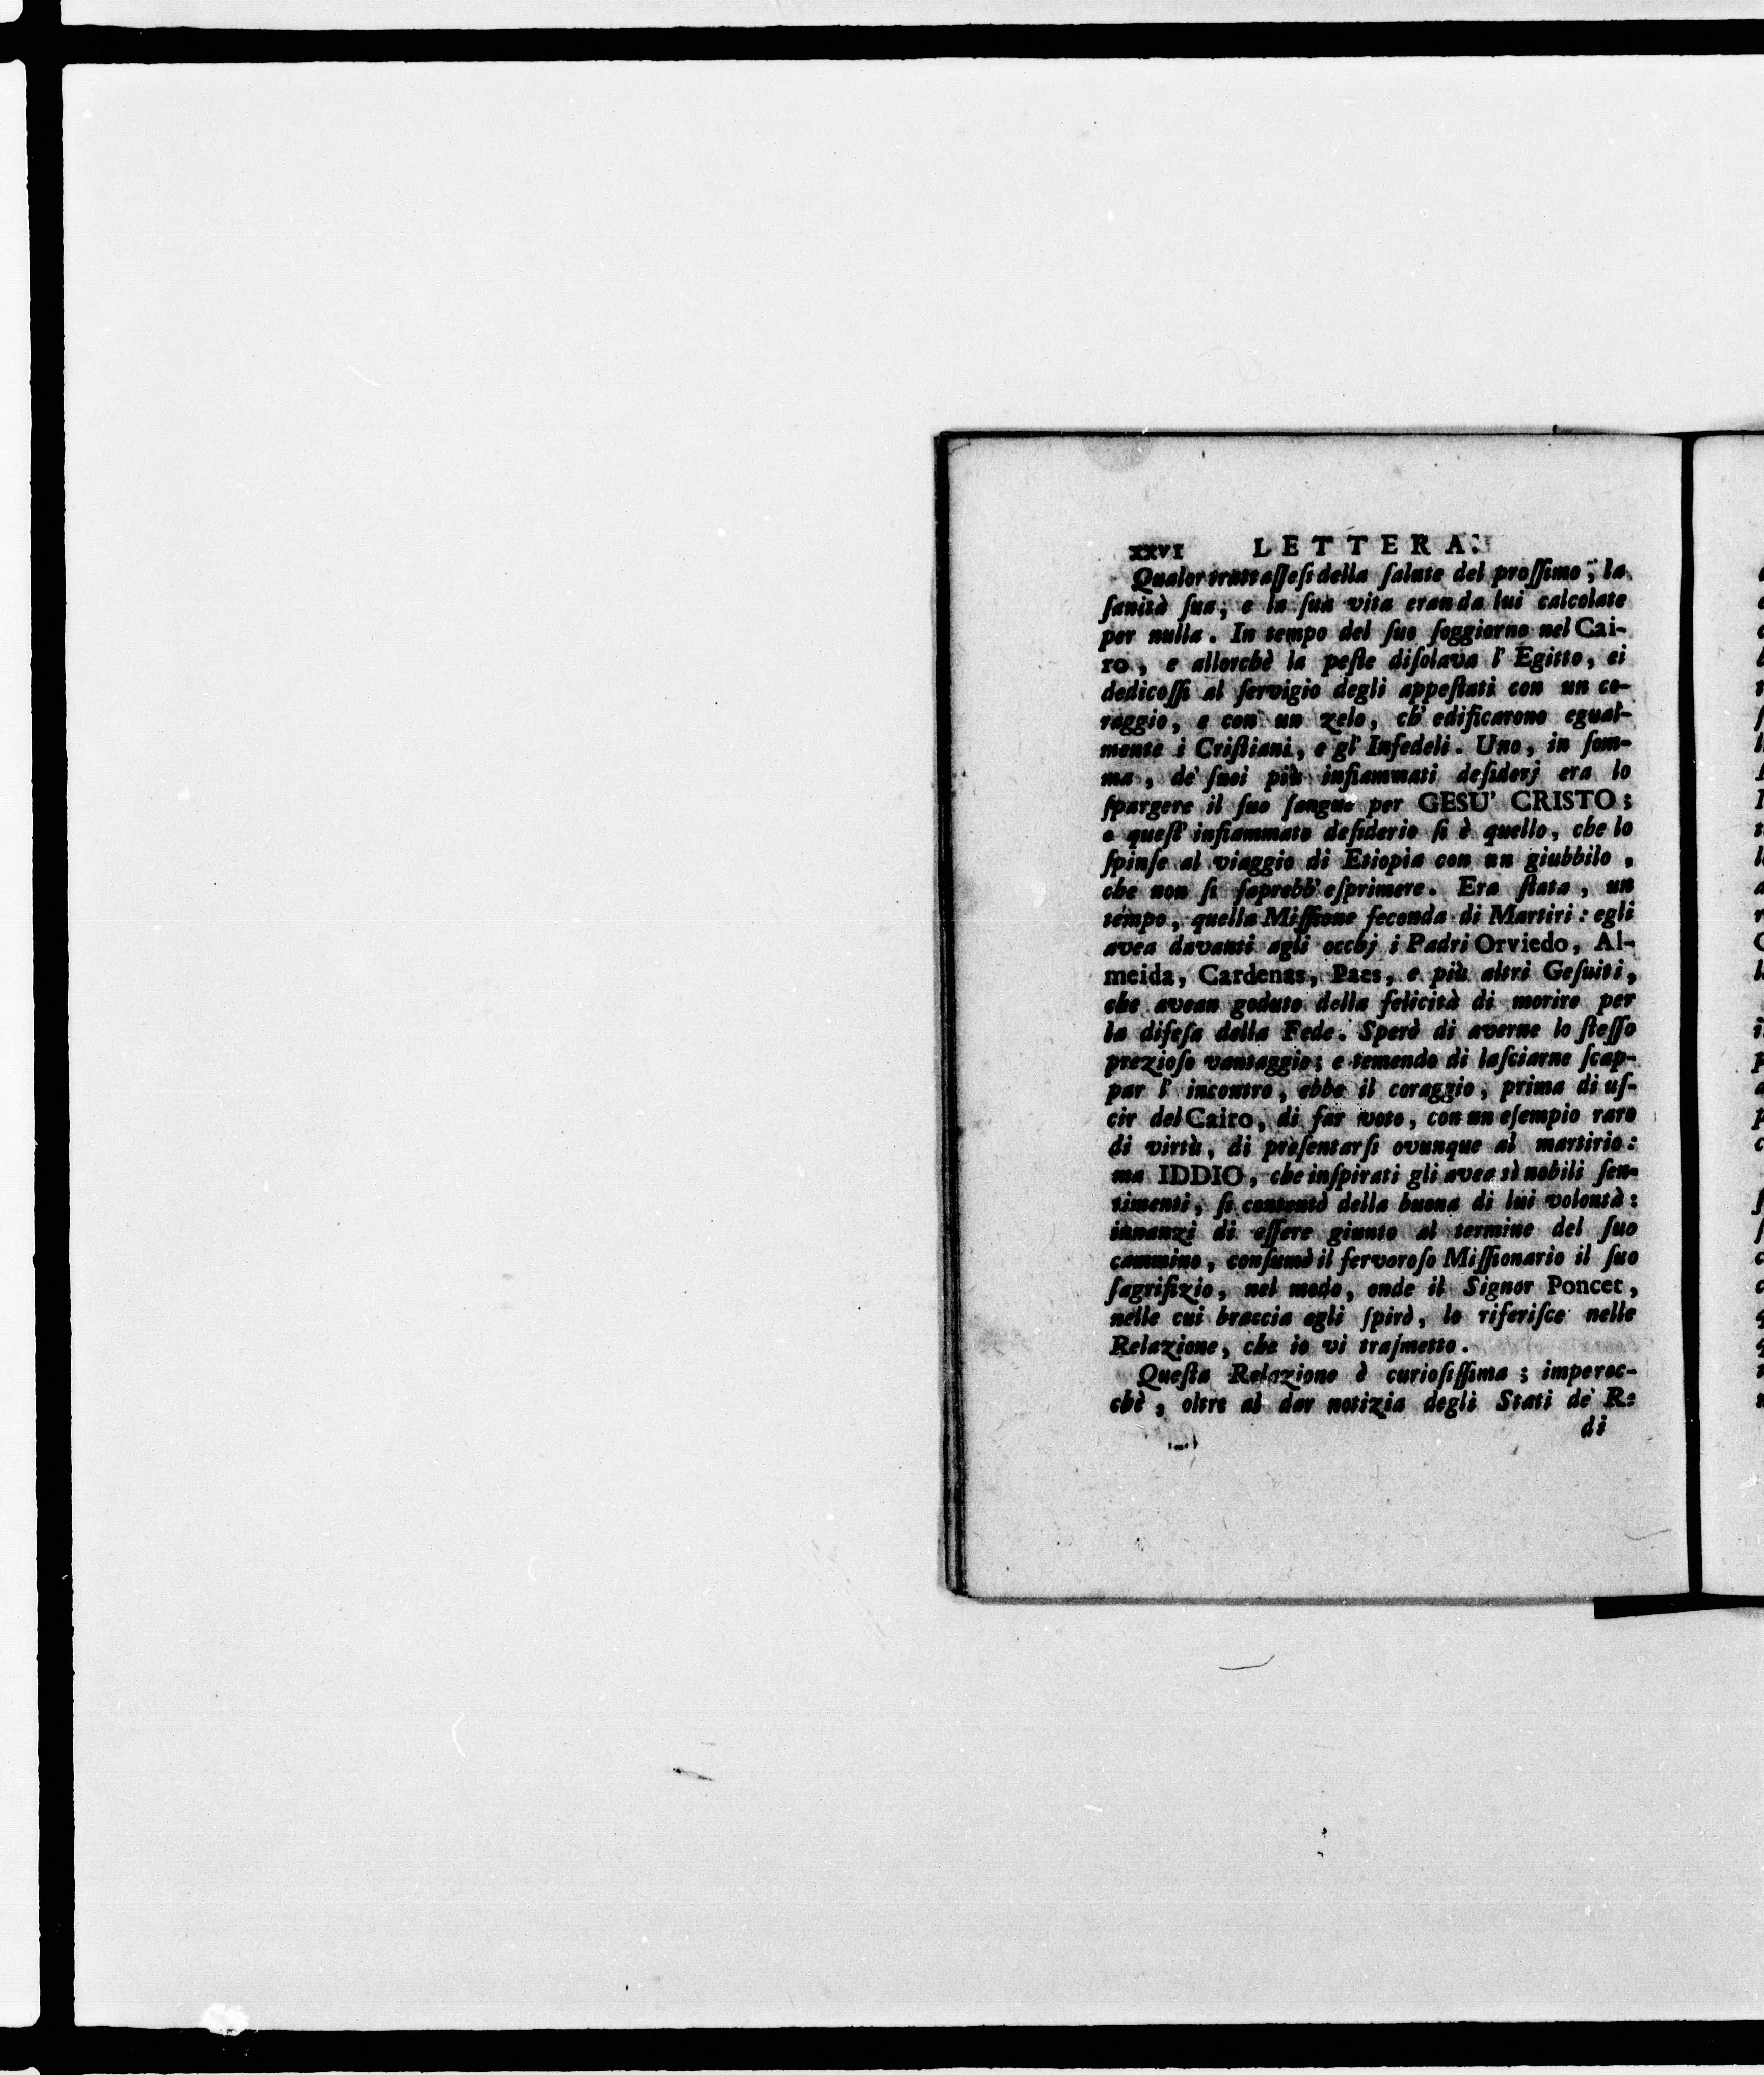 xxvi LETTERA.
Qualor trattaſſeſi della ſalute del proſſimo, la
ſanità ſua, e la ſua vita eran da lui calcolate
per nulla. In tempo del ſuo ſoggiorno nel Cai-
ro, e allorchè la peſte diſolava l' Egitto, ei
dedicoſſi al ſervigio degli appeſtati con un co-
raggio, e con un zelo, ch' edificarono egual-
mente i Criſtiani, e gl' Infedeli. Uno, in ſom-
ma, de' ſuoi più infiammati deſiderj era lo
ſpargere il ſuo ſangue per GESU' CRISTO;
e queſt' infiammato deſiderio ſi è quello, che lo
ſpinſe al viaggio di Etiopia con un giubbilo,
che non ſi ſaprebb' eſprimere. Era ſtata, un
tempo, quella Miſſione feconda di Martiri: egli
avea davanti agli occhj i Padri Orviedo, Al-
meida, Cardenas, Paes, e più altri Geſuiti,
che avean goduto della felicità di morire per
la difeſa della Fede. Sperò di averne lo ſteſſo
prezioſo vantaggio; e temendo di laſciarne ſcap-
par l' incontro, ebbe il coraggio, prima di uſ-
cir del Cairo, di far voto, con un eſempio raro
di virtù, di preſentarſi ovunque al martirio:
ma IDDIO, che inſpirati gli avea sì nobili ſen-
timenti, ſi contentò della buona di lui volontà:
innanzi di eſſere giunto al termine del ſuo
cammino, conſumò il fervoroſo Miſſionario il ſuo
ſagrifizio, nel modo, onde il Signor Poncet,
nelle cui braccia egli ſpirò, lo riferiſce nelle
Relazione, che io vi traſmetto.
Queſta Relazione è curioſiſſima; imperoc-
chè, oltre al dar notizia degli Stati de' R:
di